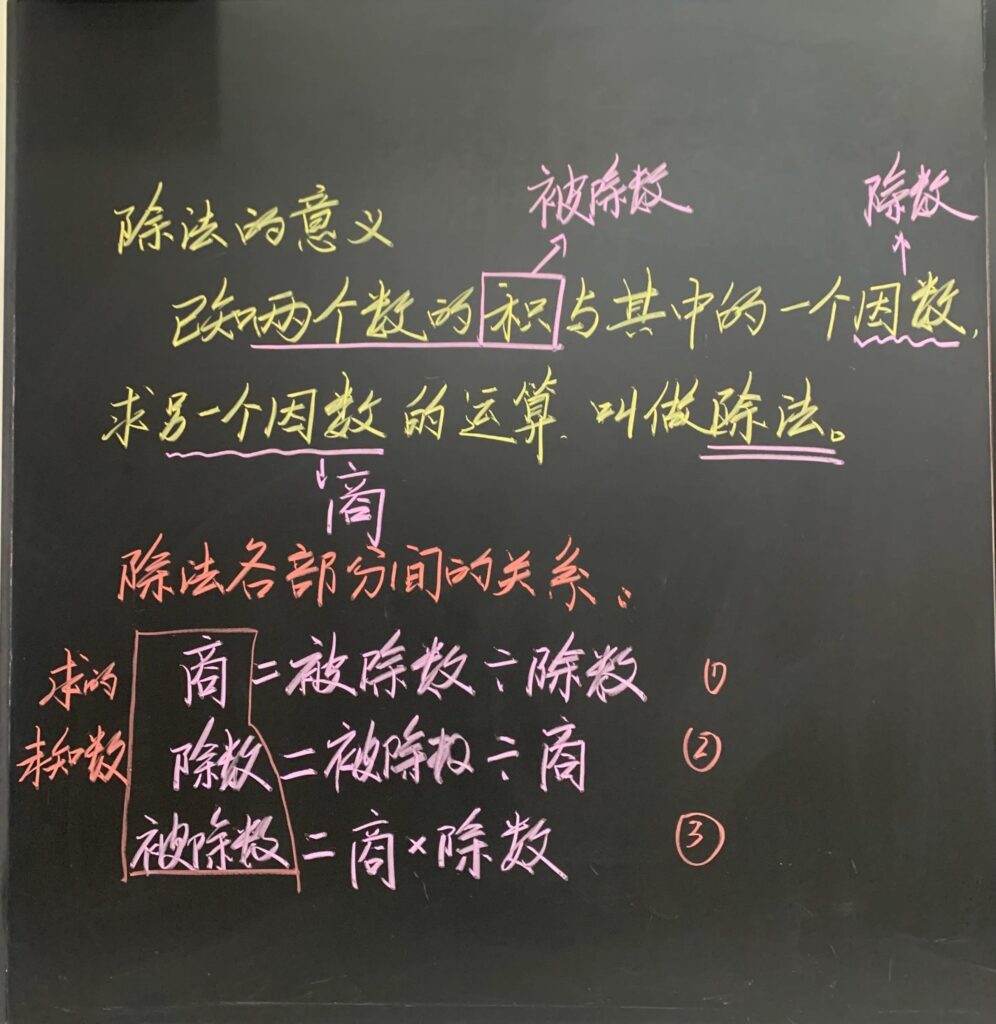 被除数 除数
除法的意义
已知两个数的积与其中的一个因数,
求另一个因数的运算.叫做除法。
商
除法各部分间的关系:
求的 商=被除数÷除数 ①
未知数 除数=被除数÷商 ②
被除数=商×除数 ③